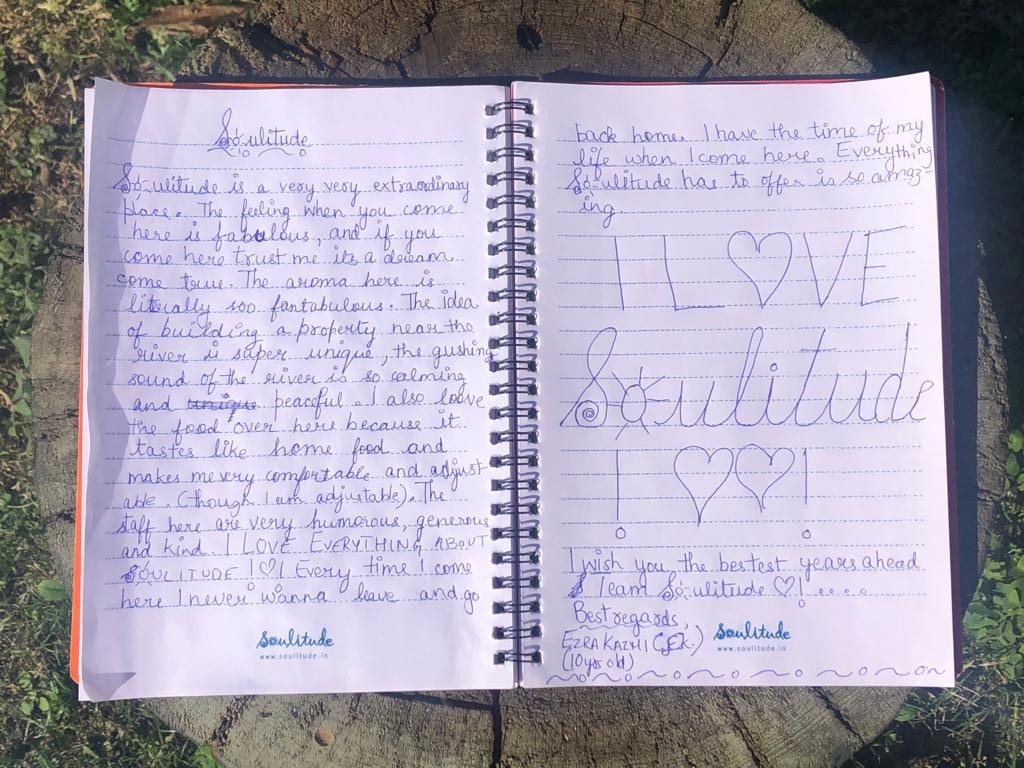 Soulitude
Soulitude is a very very extraordinary
place. The feeling when you come
here is fabulous, and if you
come here trust me its a dream
come true. The aroma here is
literally soo fantabulous. The idea
of building a property near the
river is super unique, the gushing
sound of the river is so calming
and unique peaceful. I also loove
the food over here because it
tastes like home food and
makes me very comfortable and adjust
able. (though I am adjustable). The
staff here are very humorous, generous
and kind. I LOVE EVERYTHING ABOUT
SOULITUDE !♡! Every time I come
here I never wanna leave and go
Soulitude
www.soulitude.in
back home. I have the time of my
life when I come here. Everything
Soulitude has to offer is so amaz-
ing.
I L♡VE
Soulitude
! ♡♡ !
I wish you the bestest years ahead
Team Soulitude ♡! ....
Best regards,
EZRA KAZMI
(10 yrs old)
Soulitude
www.soulitude.in